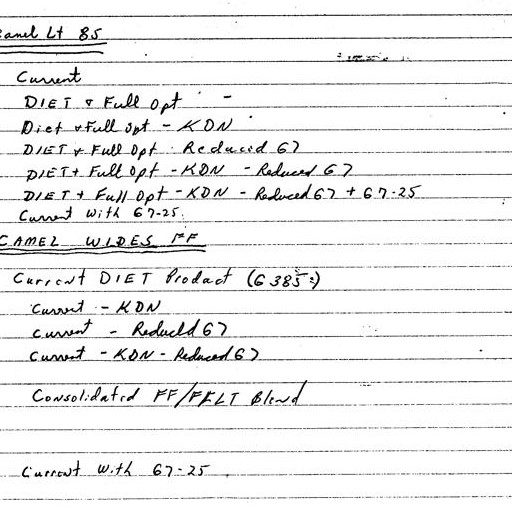 Camel Lt 85
Current
DIET & Full Opt -
Diet & Full Opt - KDN
DIET & Full Opt - Reduced G7
DIET + Full Opt - KDN - Reduced G7
DIET + Full Opt - KDN - Reduced G7 + G7-25
Current With G7-25.
CAMEL WIDES FF
Current DIET Product (G385:)
Current - KDN
Current - Reduced G7
Current - KDN - Reduced G7
Consolidated FF/FFLT Blend
Current With G7-25